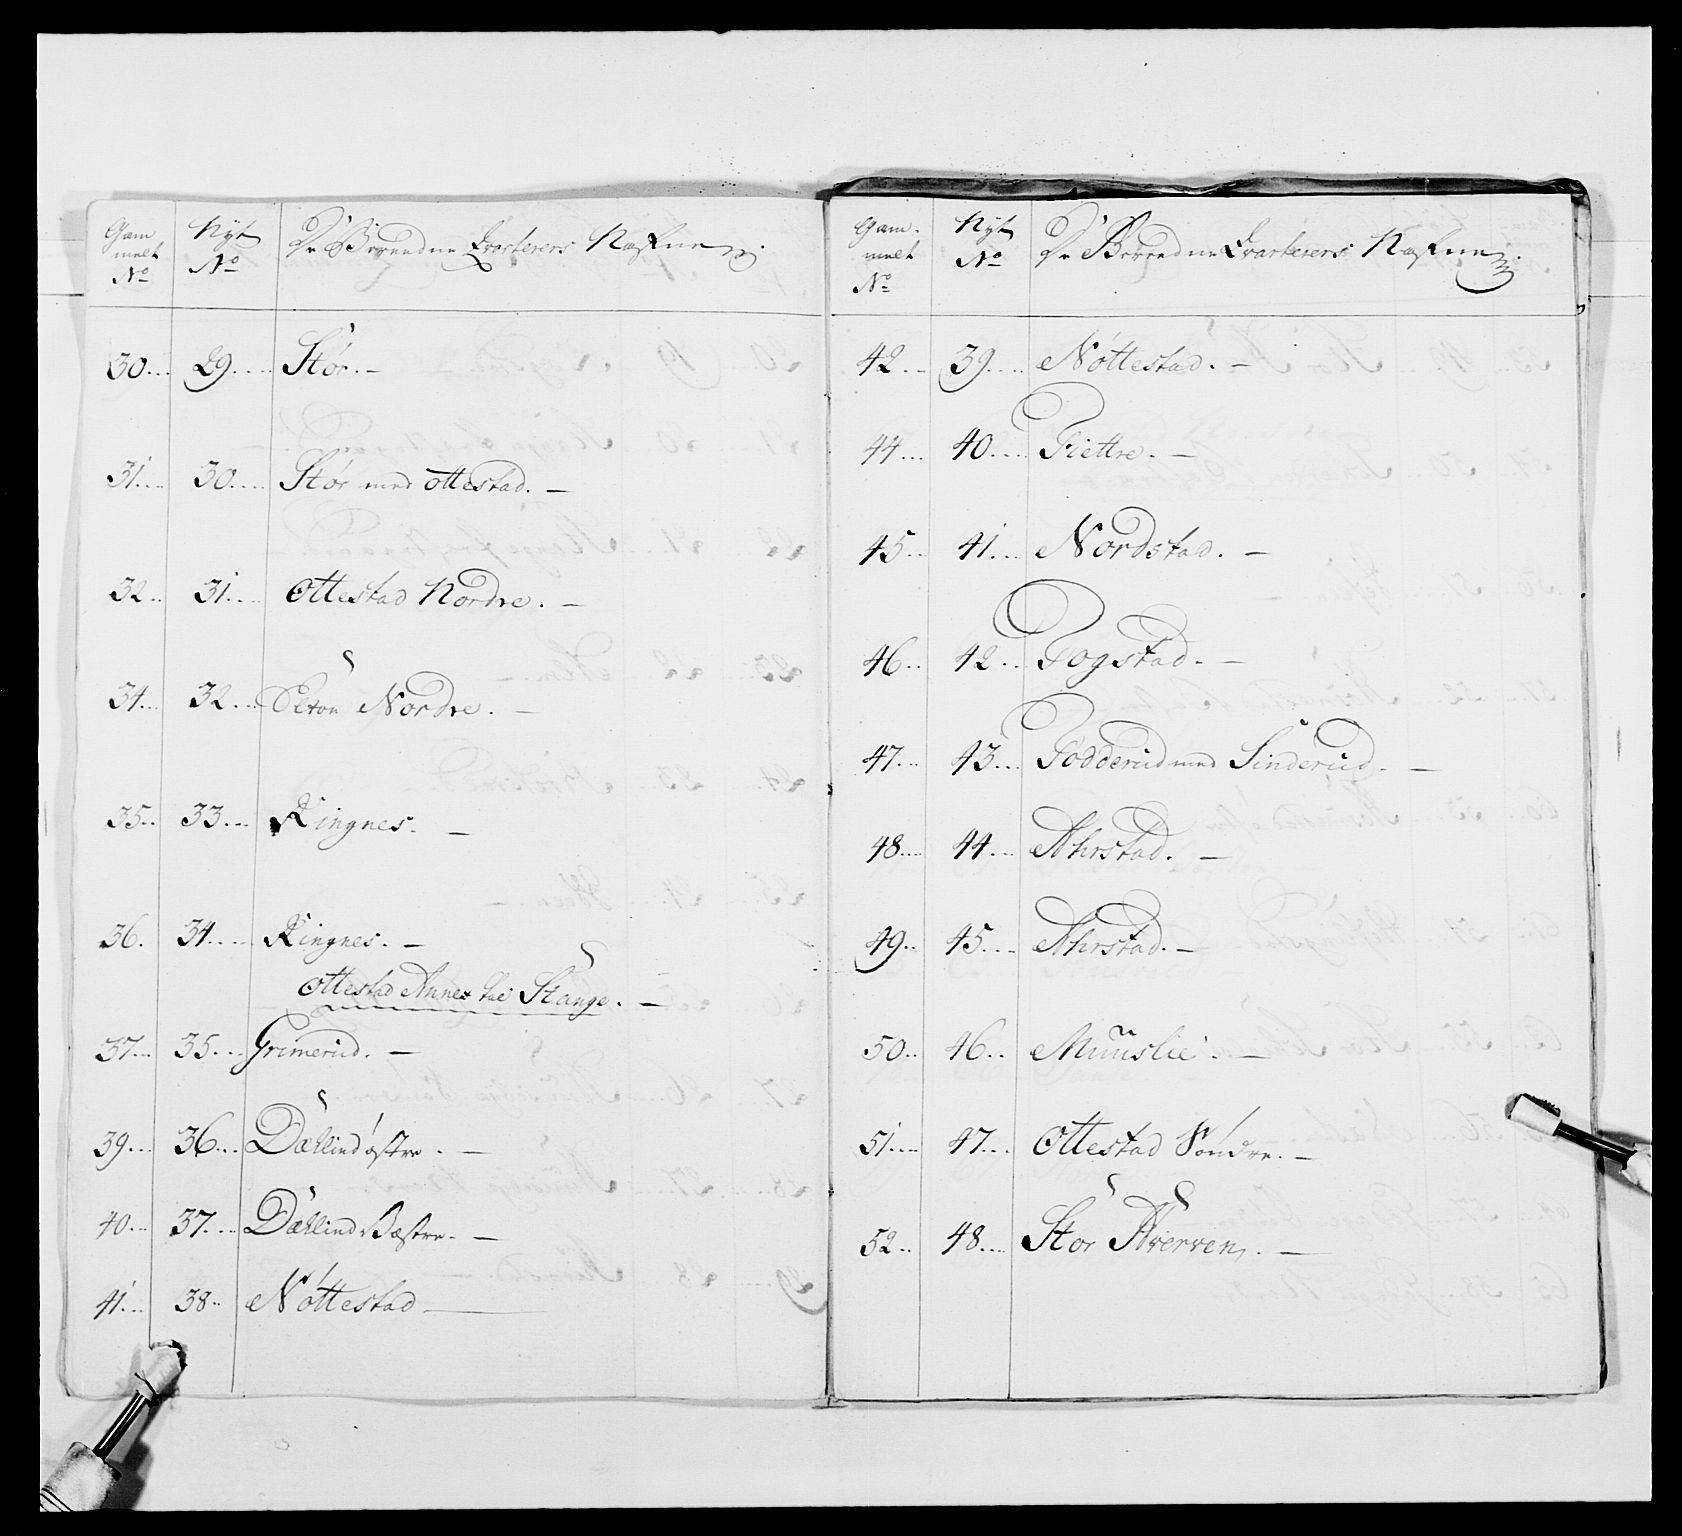 Gam
melt
No
Nÿt
No
De Bereedne Qvarterers Nafne
30 29 Stør.
31 30 Stør med Ottestad.
32 31 Ottestad Nordre.
34 32 Nordre.
35 33 Ringnes.
36. 34 Ringnes.
Ottestad Annex til Stange.
37 35 Grimerud.
39 36 Dæhlind østre.
40 37 Dæhlind Væstre.
41 38 Nøttestad
Gam
melt
No
Nÿt
No
De Bereedne Qvarterers Nafne
42 39 Nøttestad.
44 40 Fiettre.
45 41 Nordstad.
46 42 Fogstad.
47 43 Fødderud med Sinderud.
48 44 Ahrstad.
49 45 Ahrstad.
50 46 Muuslie.
51 47 Ottestad Søndre.
52 48 Stor Hverven.